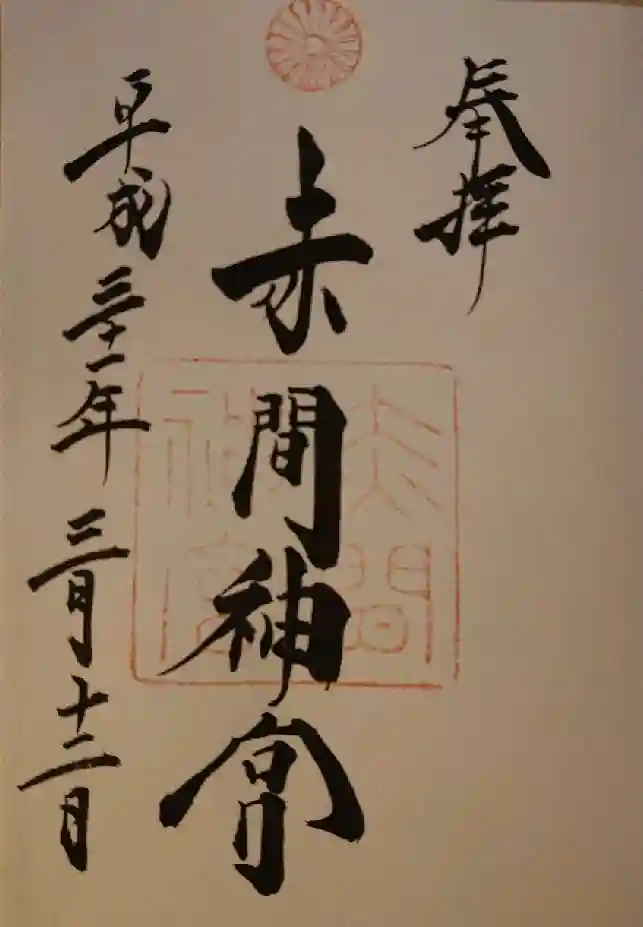 奉拝
赤間神宮
平成三十一年三月十二日
赤間
神宮